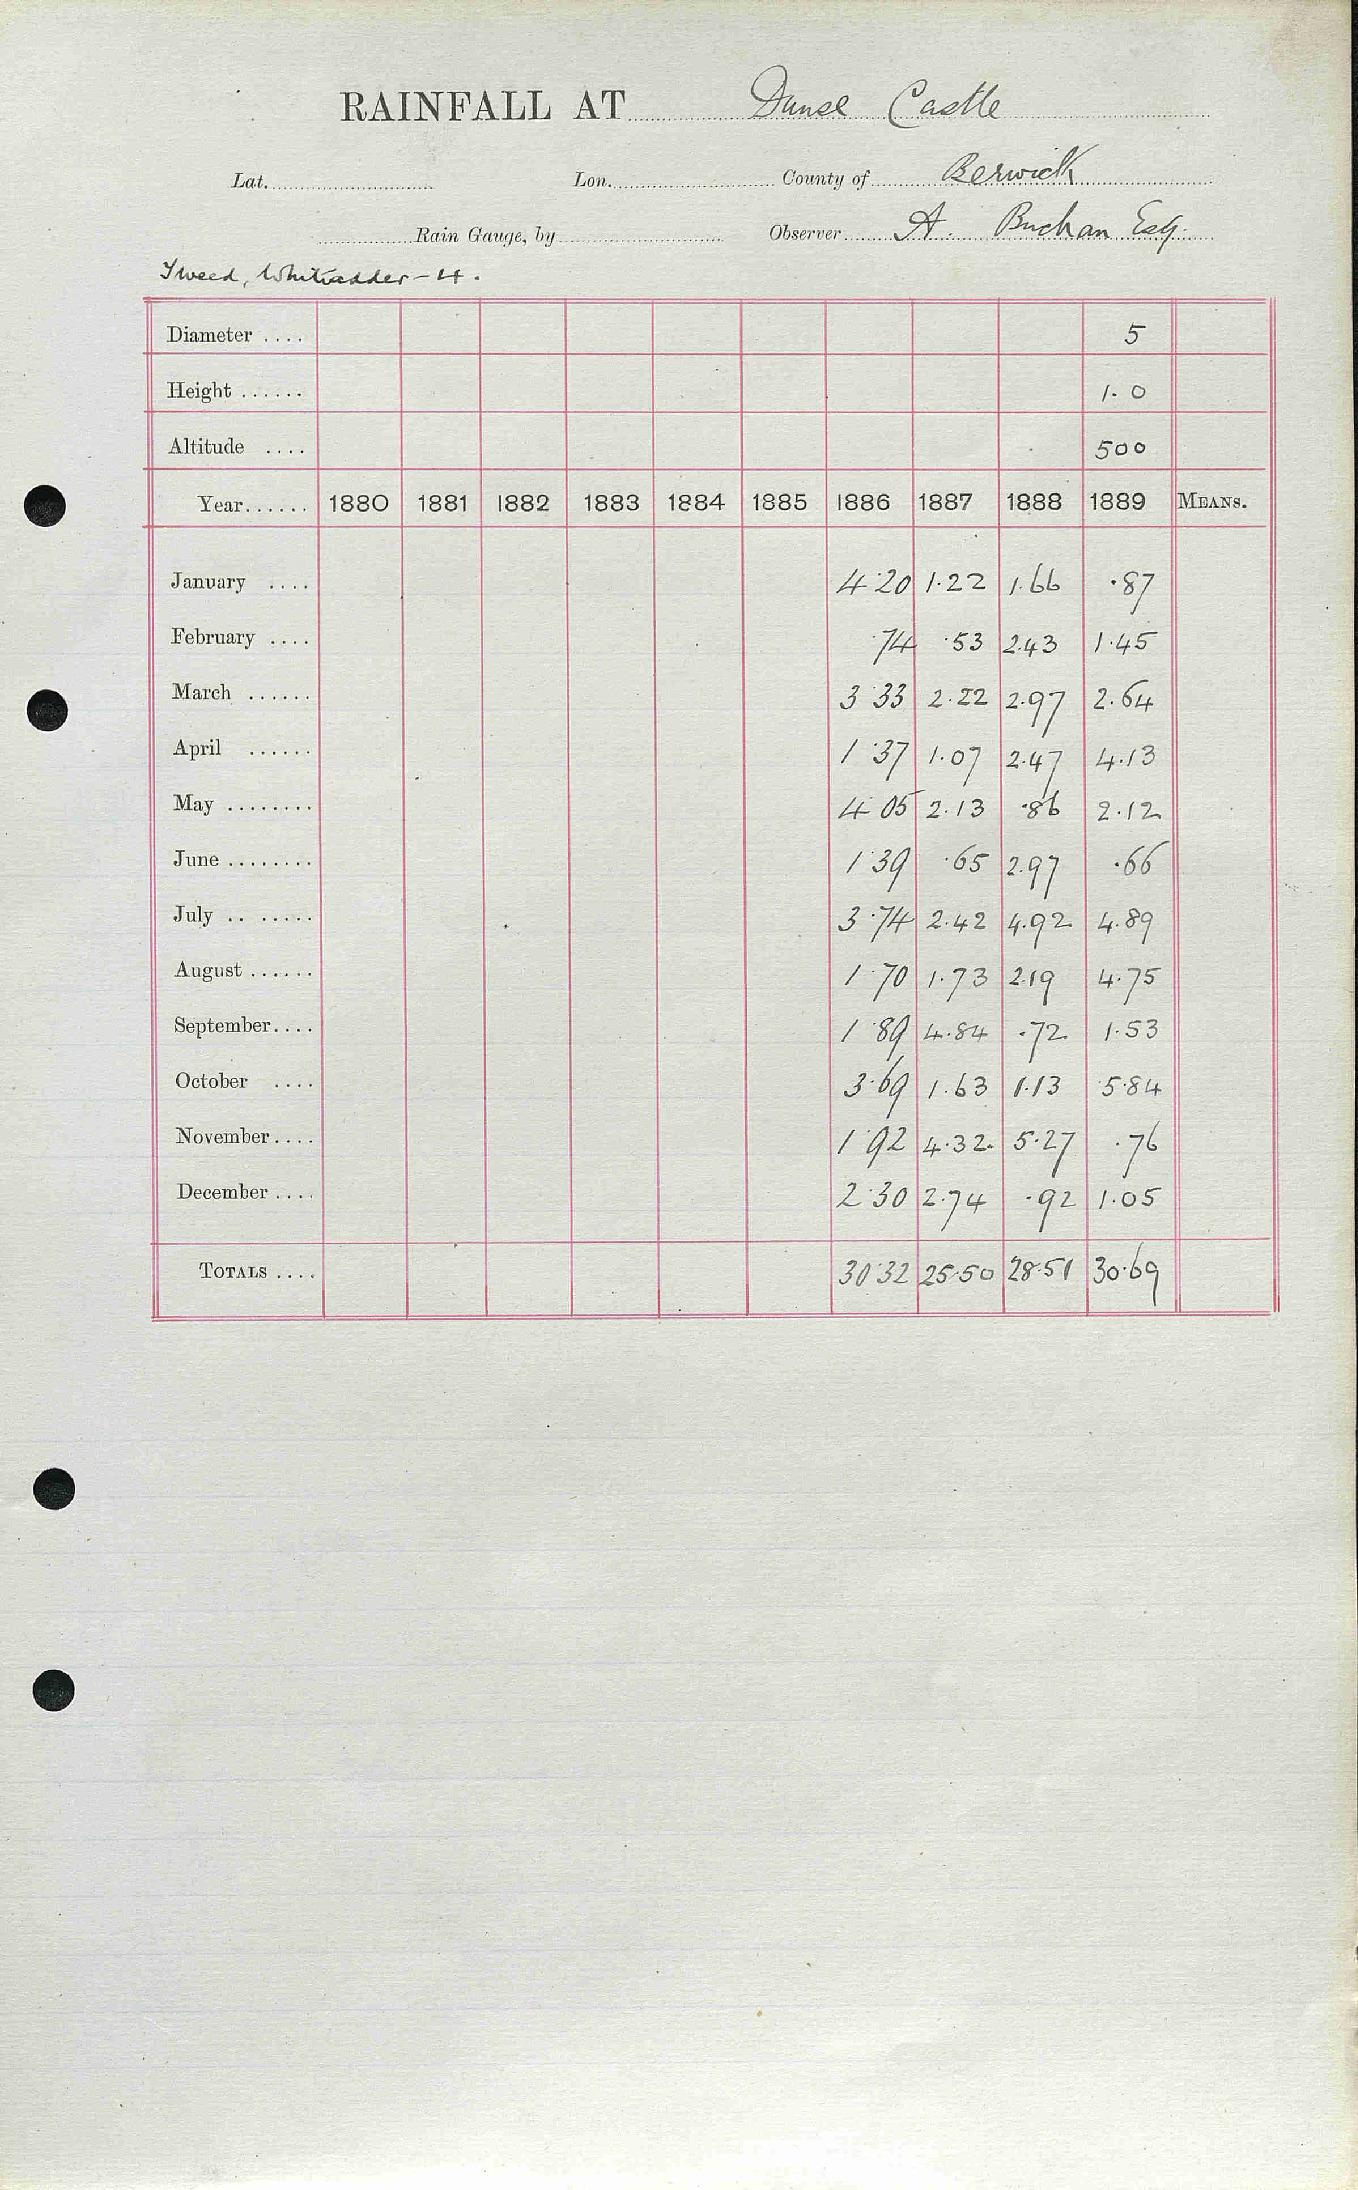 RAINFALL AT Dunse Castle
Lat. Lon. County of Berwick
Rain Gauge, by Observer A. Buchan Esq.
Tweed, Whiteadder - 4.
Diameter .... 5
Height ...... 1.0
Altitude .... 500
Year...... 1880 1881 1882 1883 1884 1885 1886 1887 1888 1889 MEANS.
January .... 4.20 1.22 1.66 .87
February .... .74 .53 2.43 1.45
March ...... 3.33 2.22 2.97 2.64
April ...... 1.37 1.07 2.47 4.13
May ........ 4.05 2.13 .86 2.12
June ........ 1.39 .65 2.97 .66
July .. ..... 3.74 2.42 4.92 4.89
August ...... 1.70 1.73 2.19 4.75
September.... 1.89 4.84 .72 1.53
October .... 3.69 1.63 1.13 5.84
November.... 1.92 4.32 5.27 .76
December .... 2.30 2.74 .92 1.05
TOTALS .... 30.32 25.50 28.51 30.69